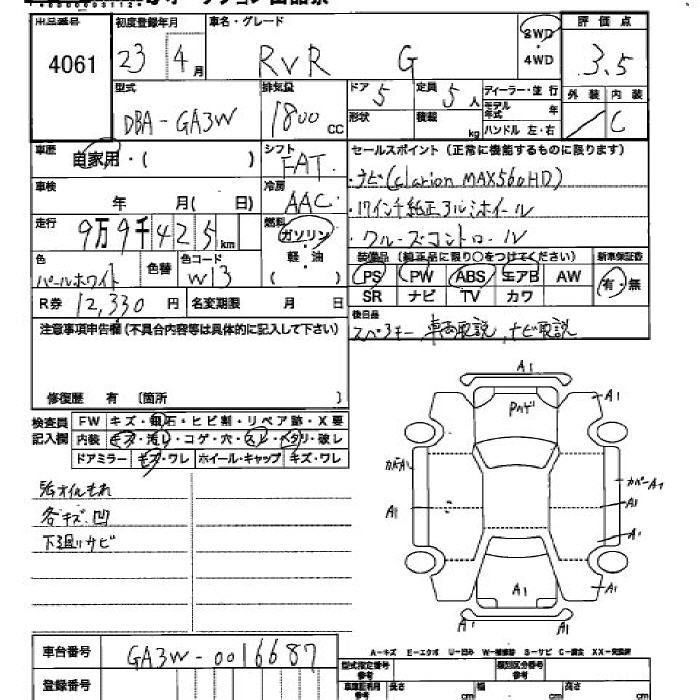 出品番号 初度登録年月 車名・グレード 2WD・4WD 評価点
4061 23 4月 RVR G 3.5
型式 排気量 ドア 5 定員 5人 ディーラー・並行 外装 内装
DBA-GA3W 1800 CC 形状 積載 kg モデル年式 年 ハンドル 左・右 C
車歴 自家用・( ) シフト FAT セールスポイント (正常に機能するものに限ります)
車検 年 月( 日) 冷房 AAC ・ナビ(Clarion MAX560HD)
走行 9万9千425km 燃料 ガソリン・軽・油 ( ) ・17インチ純正アルミホイール
・クルーズコントロール
色 パールホワイト 色替 色コード W13 装備品(純正品に限り○をつけてください) 新車保証書
PS PW ABS エアB AW 有・無
R券 12,330円 名変期限 月 日 SR ナビ TV カワ
注意事項申告欄 (不具合内容等は具体的に記入して下さい) 後日品
スペアキー 車両取説、ナビ取説
修復歴 有 [箇所 ]
検査員記入欄 FW キズ・飛石・ヒビ割・リペア跡・X要
内装 キズ・汚レ・コゲ・穴・スレ・ヘタリ・破レ
ドアミラー キズ・ワレ ホイール・キャップ キズ・ワレ
A1
Pハゲ
A1
カバーA1
カバーA1
A1
A1
A1
A1
A1
A1
A1
各キズ、凹
下廻りサビ
A-キズ E-エクボ U-凹み W-補修跡 S-サビ C-腐食 XX-交換済
車台番号 GA3W-0016687
登録番号
型式指定番号 参考 類別区分番号 参考
長さ cm 幅 cm 高さ cm